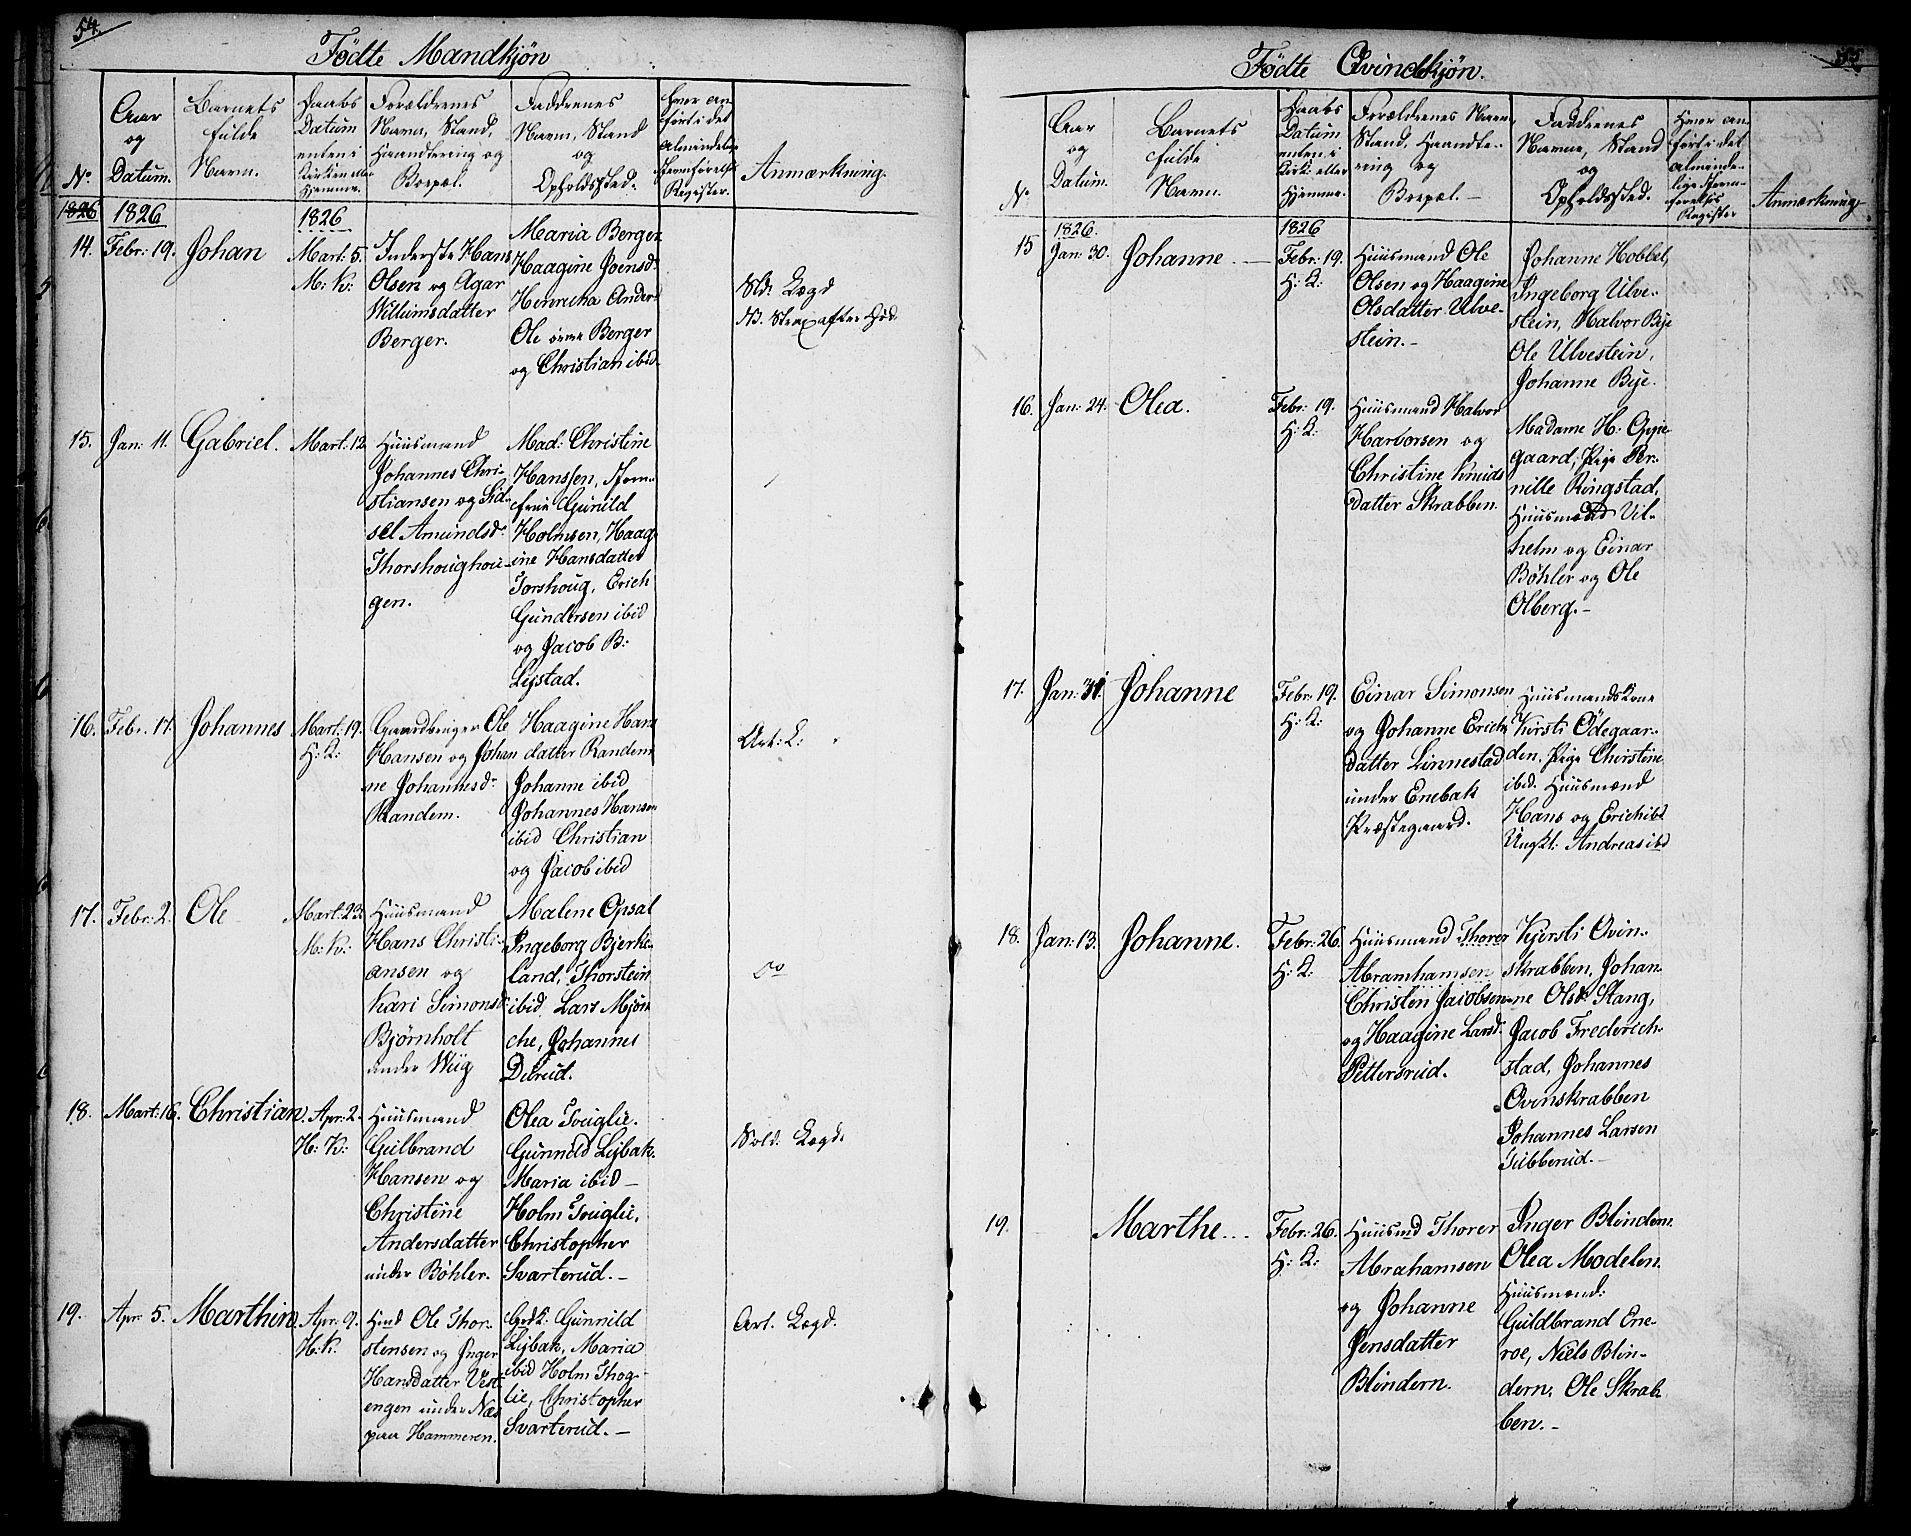 54.
Födte Mandkjøn
No
Aar
og
Datum.
Barnets
fulde
Navn.
Daabs
Datum
enten i
Kirken eller
Hjemme.
Forældrenes
Navn, Stand,
Haandtering og
Boepæl.
Faddrenes
Navn, Stand
og
Opholdssted.
Hvor an
ført i det
Almindelige
Jevnførelses
Register.
Anmærkning.
1826
1826
1826
14.
Febr: 19.
Johan
Mart: 5.
M: K:
Inderste Hans
Olsen og Agar
Willumsdatter
Berger.
Maria Berger
Haagine Joensd.
Henricha Anders
Ole Berger
og Christian ibid
Sld: Lægd
NB. Strax after Hød.
15.
Jan: 11.
Gabriel.
Mart: 12
Huusmand
Johannes Chri-
stiansen og Sid-
sel Amundsdr.
Thorshoughou-
gen.
Mad: Christine
Hanssen, Jom-
frue Gunild
Holmsen, Haag-
ine Hansdatter
Torshoug, Erich
Gundersen ibid
og Jacob B:
Lystad.
16.
Febr. 17.
Johannes
Mart: 19.
H: K:
Gaardbruger Ole
Hansen og Johan
ne Johannesdr
Randem.
Haagine Hans
datter Randem
Johanne ibid
Johannes Hansen
ibid Christian
og Jacob ibid
Art: L:
17.
Febr: 2.
Ole
Mart: 23.
M: K:
Huusmand
Hans Christi-
ansen og
Kari Simonsd.
Bjørnholt
under Wiig
Malene Opsal
Ingeborg Bjerke-
land, Thorstein
ibid. Lars Mjøn
che, Johannes
Delrud.
Do
18.
Mart: 16.
Christian.
Apr: 2.
H: K:
Huusmand
Gulbrand
Hansen og
Christine
Andersdatter
under Bøhler.
Olea Touglie.
Gunnild Lysbak.
Maria ibid –
Holm Touglie,
Christopher
Svarterud. –
Sold: Lægd.
19.
Apr: 5.
Marthin.
Apr: 9.
H: K.
Hmd Ole Thor-
stensen og Inger
Hansdatter Vest-
engen under Næs
paa Hammeren.
Grdk: Gunnild
Lysbak, Maria
ibid Holm Thog-
lie, Christopher
Svarterud. –
Art. Lægd.
55
Födte Qvindekjøn.
No
Aar
og
Datum.
Barnets
fulde
Navn.
Daabs
Datum
enten i
Kirk: eller
Hjemme.
Forældrenes Navn,
Stand, Haandte-
ring og
Boepæl. –
Faddrenes
Navne, Stand
og
Opholdssted.
Hvor an
ført i det
Alminde-
lige Jevn-
førelses
Register
Anmærkning.
1826.
1826
15
Jan: 30.
Johanne. –
Febr: 19.
H: K:
Huusmand Ole
Olsen og Haagine
Olsdatter Ulve-
stein. –
Johanne Hobbel,
Ingeborg Ulve-
stein, Halvor Bye
Ole Ulvestein,
Johanne Bye.
16.
Jan: 24.
Olea.
Febr: 19.
H: K:
Huusmand Halvor
Harborsen og
Christine Knuds
datter Skrabben.
Madame H: Oppe-
gaard, Pige Per-
nille Ringstad,
Huusmænd Vil-
helm og Einar
Bøhler og Ole
Olberg. –
17.
Jan: 31.
Johanne
Febr: 19.
H: K:
Einar Simonsen
og Johanne Erichs
datter Linnestad
under Enebak
Præstegaard.
Huusmandskone
Kirsti Ödegaar-
den, Pige Christine
ibid. Huusmænd
Hans og Erich ibd
Ungk: Andreas ibd
18.
Jan: 13.
Johanne.
Febr: 26.
H: K:
Huusmand Thorer
Abramhamsen
Christen Jacobsen
og Haagine Larsd.
Pettersrud.
Kjersti Ovin-
skrabben, Johan-
ne Olsdr Stang,
Jacob Frederich-
stad, Johannes
Ovinskrabben
Johannes Larsen
Tubberud. –
19.
Marthe. –
Febr: 26.
H: K:
Huusmd Thorer
Abrahamsen
og Johanne
Jensdatter
Blindern.
Inger Blindern.
Olea Modelen.
Huusmænd:
Guldbrand Ene-
roe, Niels Blin-
dern, Ole Skrab
ben. –